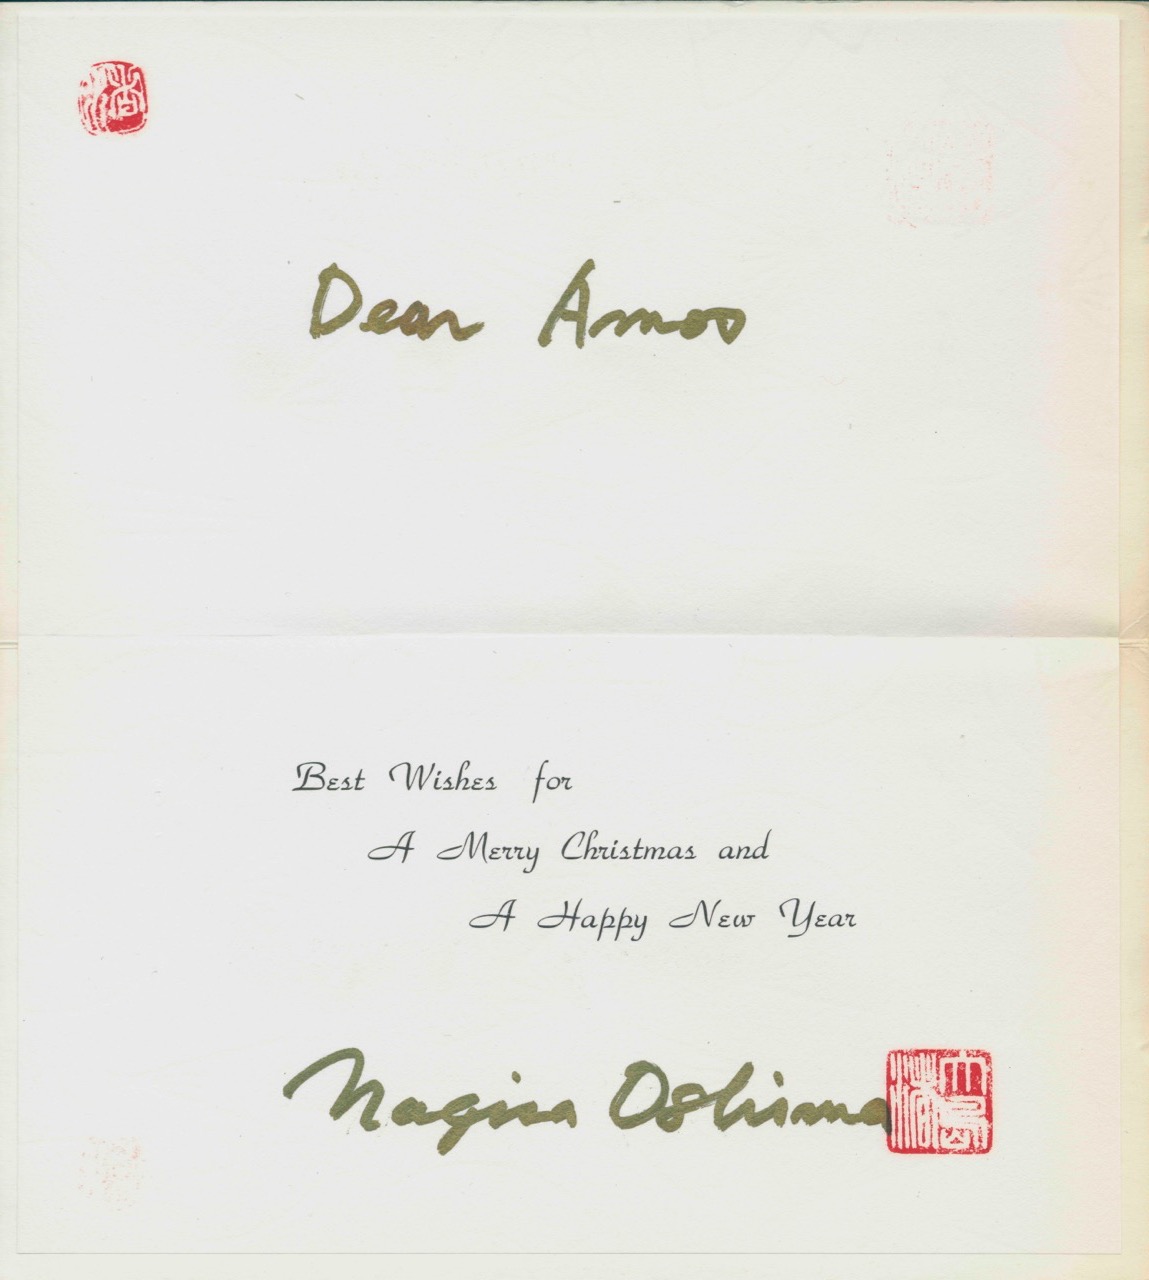 Dear Amos
Best Wishes for
A Merry Christmas and
A Happy New Year
Nagisa Oshima